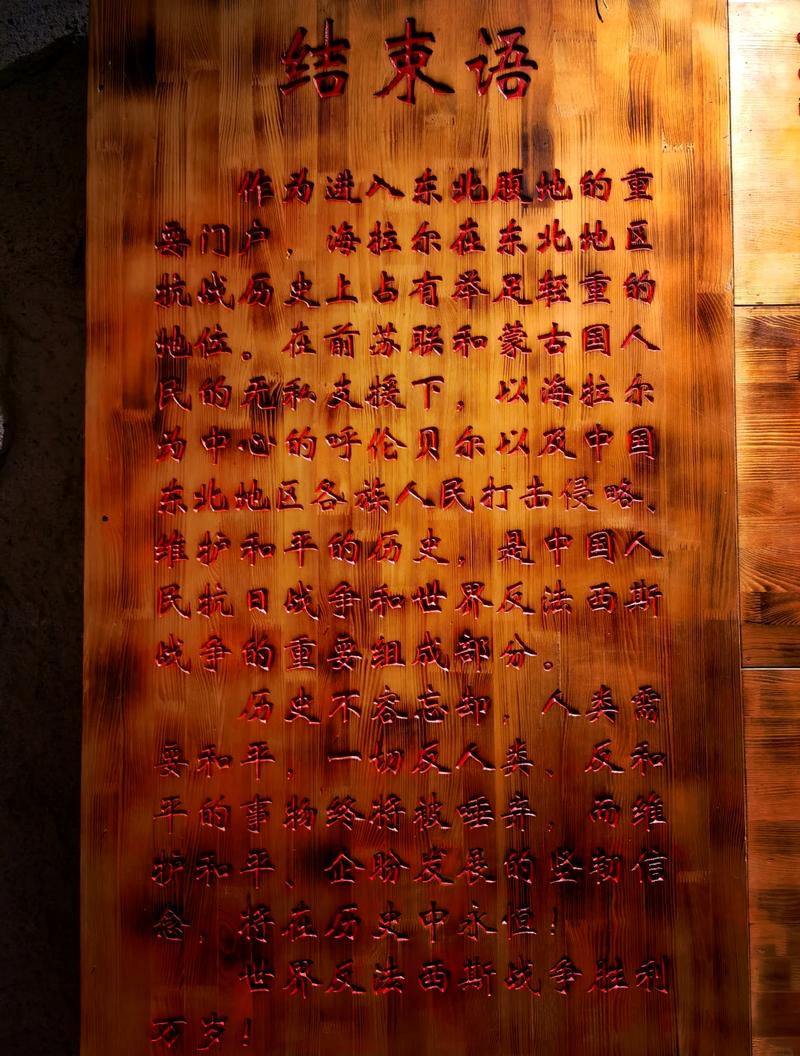 结束语
作为进入东北腹地的重
要门户，海拉尔在东北地区
抗战历史上占有举足轻重的
地位。在前苏联和蒙古国人
民的无私支援下，以海拉尔
为中心的呼伦贝尔以及中国
东北地区各族人民打击侵略、
维护和平的历史，是中国人
民抗日战争和世界反法西斯
战争的重要组成部分。
历史不容忘却，人类需
要和平，一切反人类、反和
平的事物终将被唾弃，而维
护和平、企盼发展的坚韧信
念，将在历史中永恒！
世界反法西斯战争胜利
万岁！